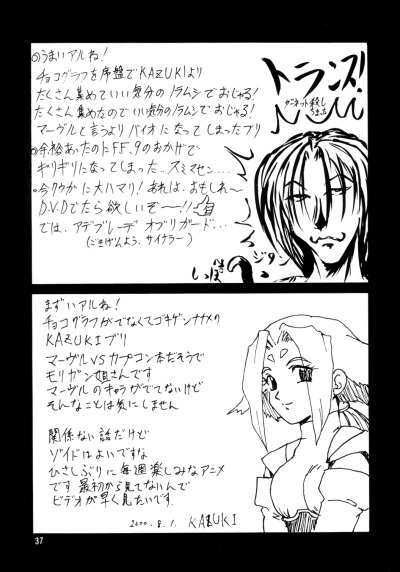 ◎うまいアルね!
チョコグラフを序盤でKAZUKIより
たくさん集めていい気分のノラムシでおじゃる!
たくさん集めたのでいい気分のノラムシでおじゃる!
マーヴルと言うよりバイオになってしまったブリ
◎余裕あったのにF.F.9のおかげで
ギリギリになってしまった..スミマセン...
◎今クウガに大ハマリ!あれは、おもしれ〜
D.V.Dでたら欲しいぞ〜!!
では、アデブレーデ オブリガード...
(ごきげんよう、サイナラー)
トランス!
ガーネット殺し
ちまった
ジタン
しっぽ
まずいアルね!
チョコグラフがでなくてゴキゲンナナメの
KAZUKIブリ
マーヴルVSカプコン本だそうで
モリガン姐さんです
マーヴルのキャラがでてないけど
そんなことは気にしません
関係ない話だけど
ゾイドはよいですな
ひさしぶりに毎週楽しみなアニメ
です 最初から見てないんで
ビデオが早く見たいです.
2000.8.1. KAZUKI
37